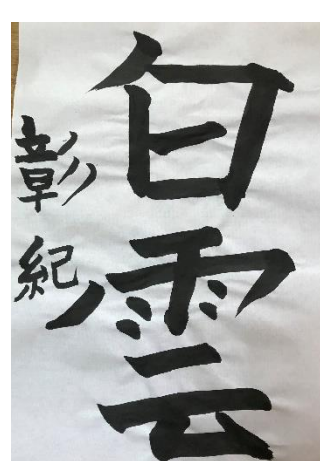 白雲
彰紀